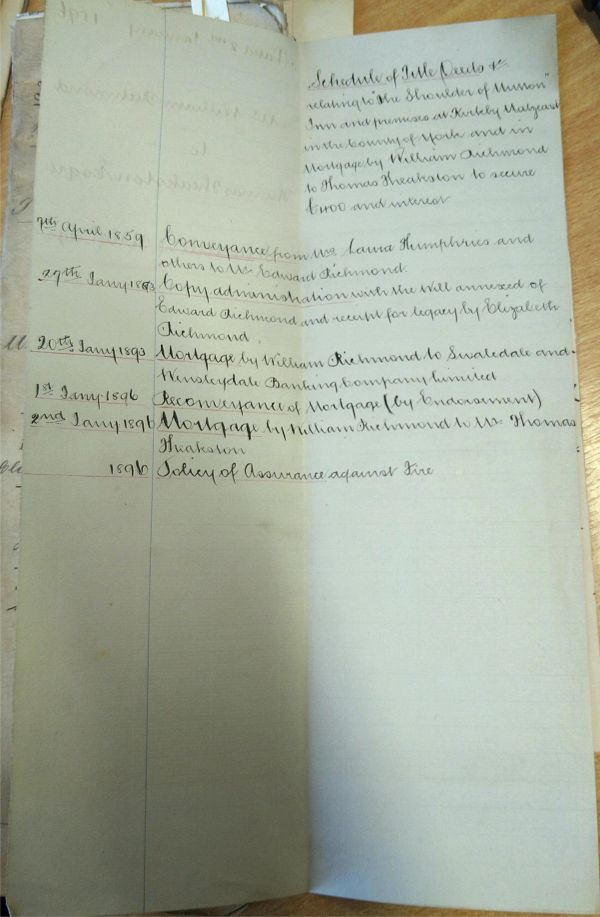 Schedule of Title Deeds &c
relating to "The Shoulder of Mutton"
Inn and premises at Kirkby Malzeard
in the County of York and in
Mortgage by William Richmond
to Thomas Theakston to secure
and interest
7th April 1859 Conveyance from Mrs. Laura Humphries and
others to Mr. Edward Richmond.
27th Jany Copy administration with the Will annexed of
Edward Richmond and receipt for legacy by Elizabeth
Richmond.
20th Jany 1893 Mortgage by William Richmond to Swaledale and
Wensleydale Banking Company limited
1st Jany 1896 Reconveyance of Mortgage (by Endorsement)
2nd Jany 1896 Mortgage by William Richmond to Mr. Thomas
Theakston
1896 Policy of Assurance against Fire